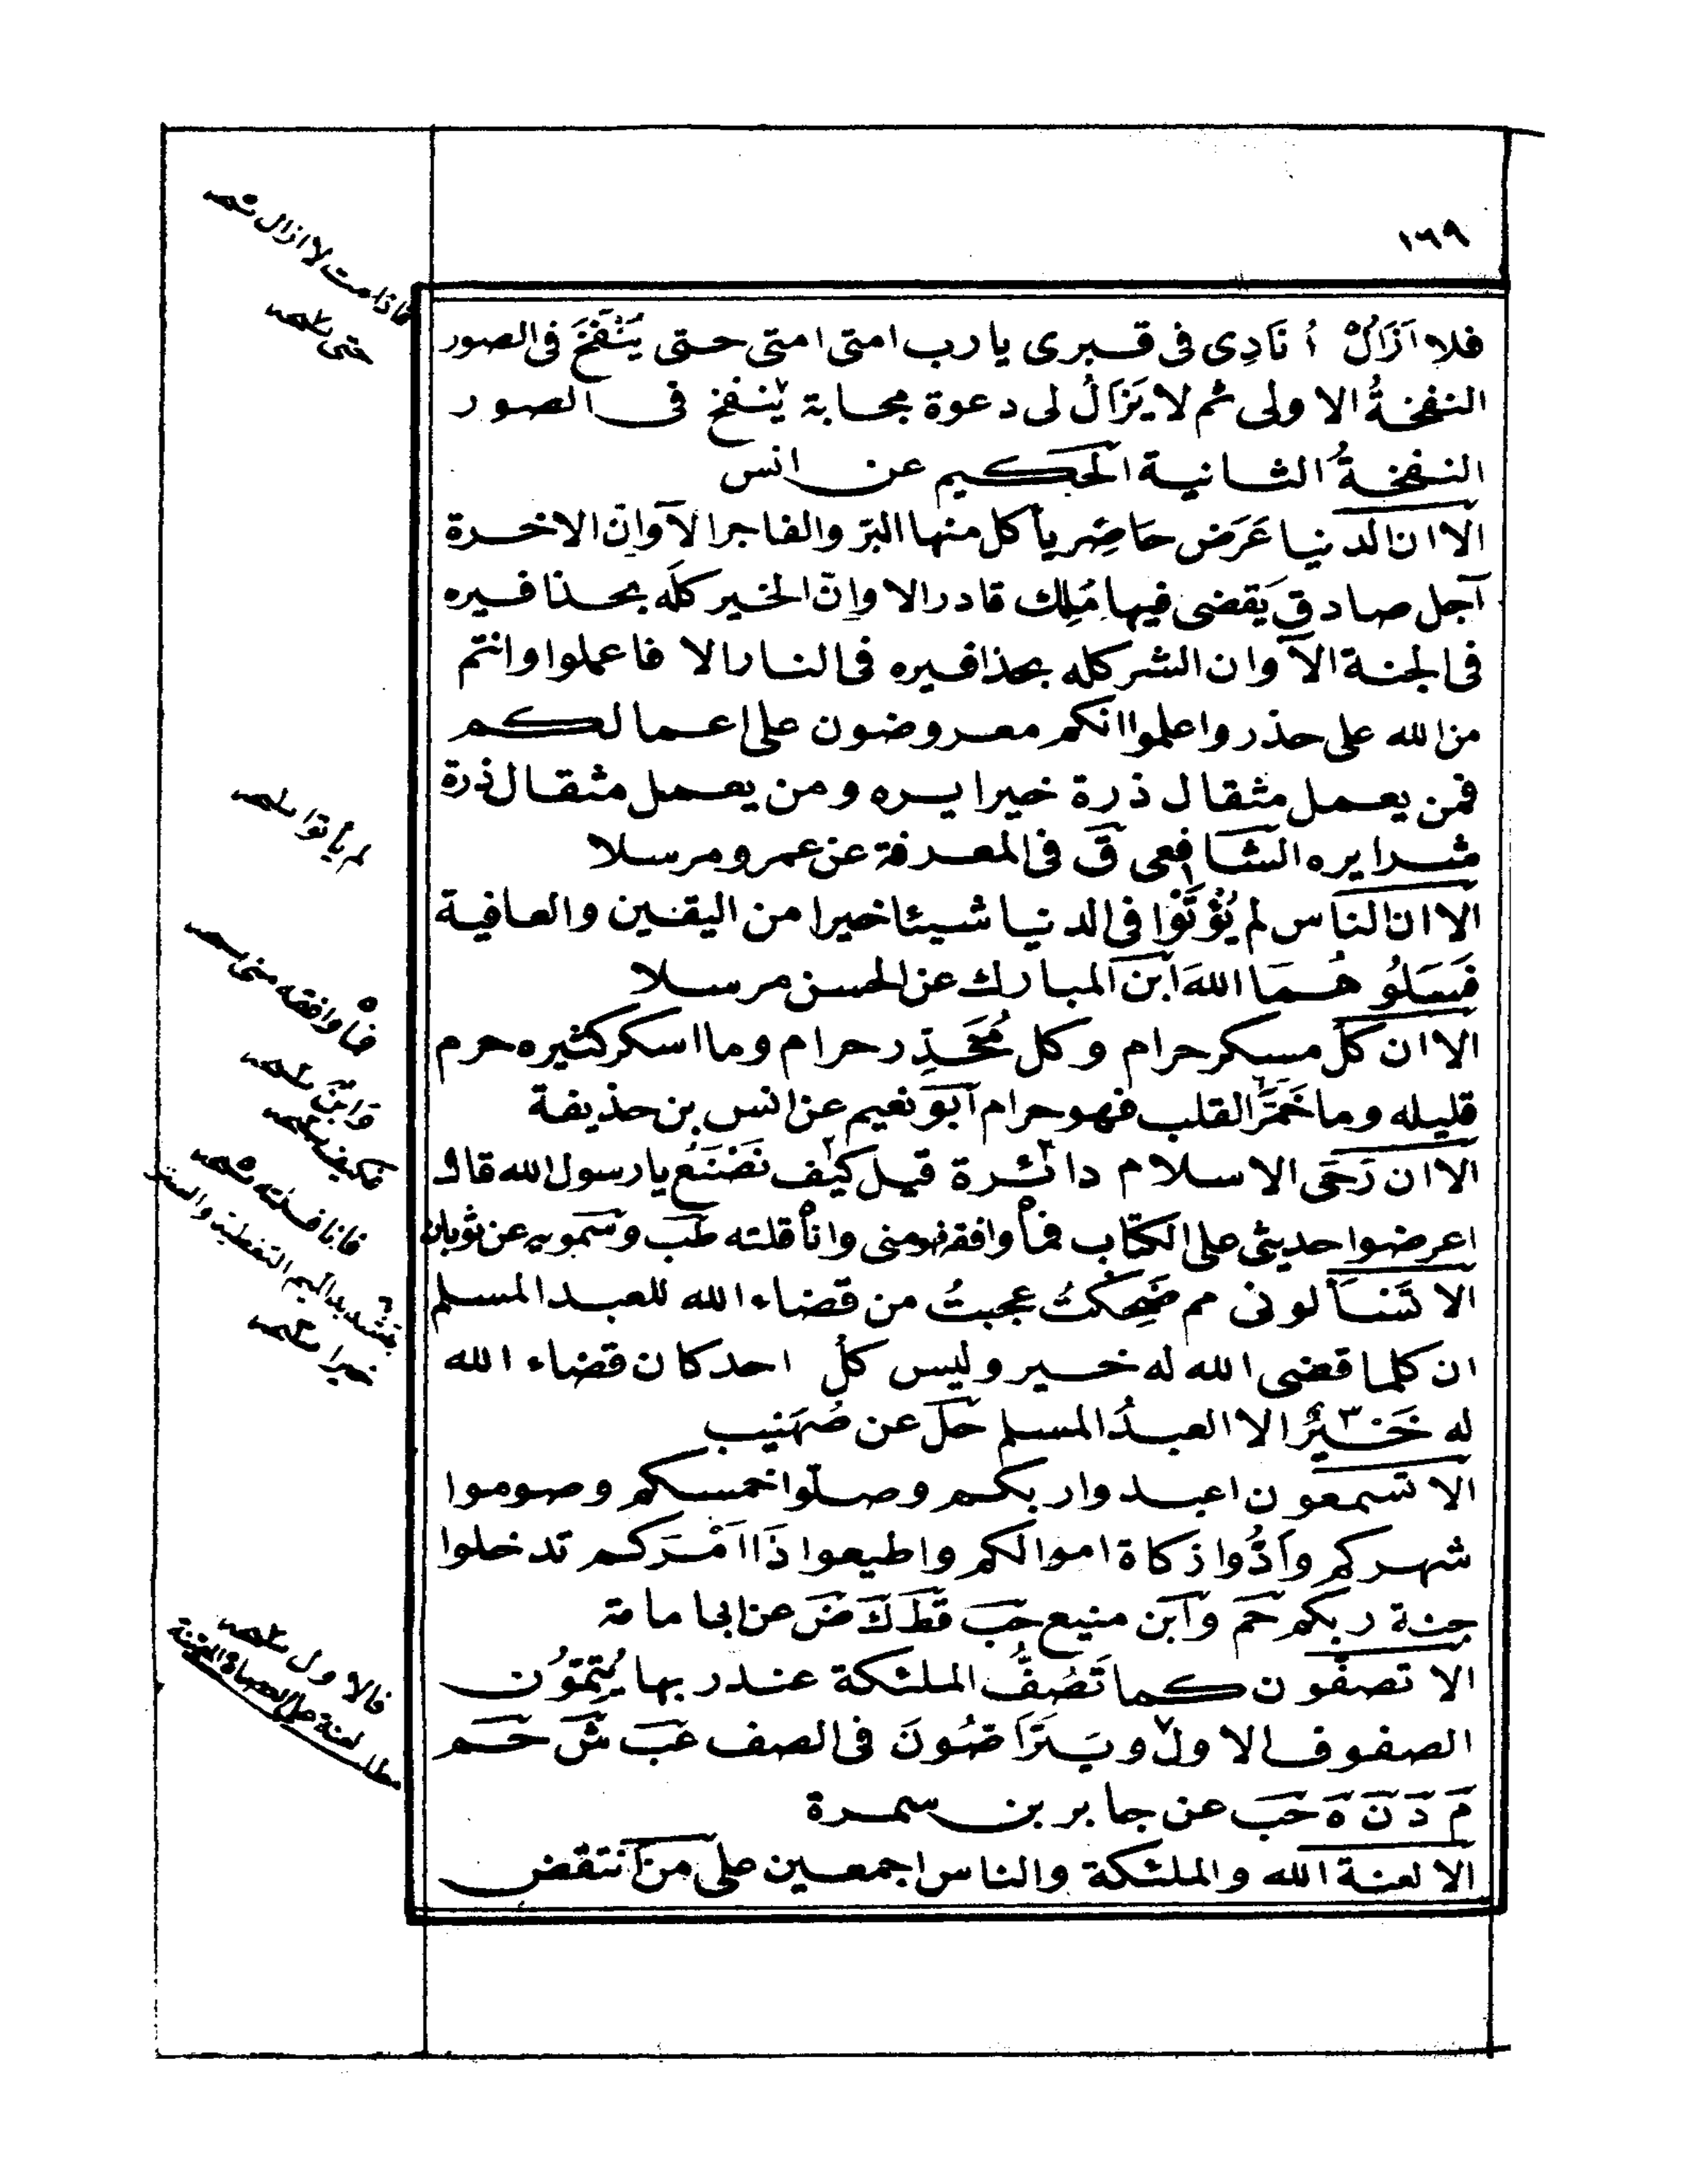 ١٦٩
فلا اَزَالُ اُنَادِى فى قبرى يا رب امتى امتى حتى يُنْفَخَ فى الصور
النفخةُ الاولى ثم لا يَزَالُ لى دعوة مجابة ينفخ فى الصور
النفخةُ الثانية الحكيم عن انس
الا ان الدنيا عَرَض حَاضِر يأكل منها البرّ والفاجر الا وانّ الاخرة
آجل صادق يَقضى فيها مَلِك قادر الا وانّ الخير كلّه بحذافيره
فى الجنة الا وان الشر كله بحذافيره فى النار الا فاعملوا وانتم
من الله على حذر واعلموا انكم معروضون على اعمالكم
فمن يعمل مثقال ذرة خيرا يره ومن يعمل مثقال ذرة
شرا يره الشافعى ق فى المعرفة عن عمرو مرسلا
الا ان الناس لم يُؤْتَوْا فى الدنيا شيئا خيرا من اليقين والعافية
فَسَلُوهُمَا اللهَ ابن المبارك عن الحسن مرسلا
الا ان كلّ مسكر حرام وكل مُخَدِّر حرام وما اسكر كثيره حرم
قليله وما خَمَّرَ القلب فهو حرام ابو نعيم عن انس بن حذيفة
الا ان رَحَى الاسلام دائرة قيل كيف نَصْنَعُ يا رسول الله قال
اعرضوا حديثى على الكتاب فما وافقه فهو منى وانا قلته طب وسمويه عن ثوبان
الا تَسْأَلونى مم ضَحِكتُ عجبتُ من قضاء الله للعبد المسلم
ان كلما قضى الله له خير وليس كلُّ احد كان قضاء الله
له خَيْرٌ الا العبدُ المسلم حل عن صُهَيْب
الا تسمعون اعبدوا ربكم وصلّوا خمسكم وصوموا
شهركم وأدُّوا زكاة اموالكم واطيعوا ذَا اَمْرَكم تدخلوا
جنة ربكم حم وابن منيع حب قط ك ض عن ابى امامة
الا تصفّون كما تَصُفُّ الملئكة عند ربها يُتِمّوُن
الصفوف الاول ويَتَرَاصُّونَ فى الصف عب ش حم
م د ن ه حب عن جابر بن سمرة
الا لعنة الله والملئكة والناس اجمعين على من انتقض
فاذا مت لا ازال
حتى
لم يأتوا
فما وافقه منى
وابن
فكيف
فانا قلته
بتشديد الميم التغطية والستر
خيرا
فالاول